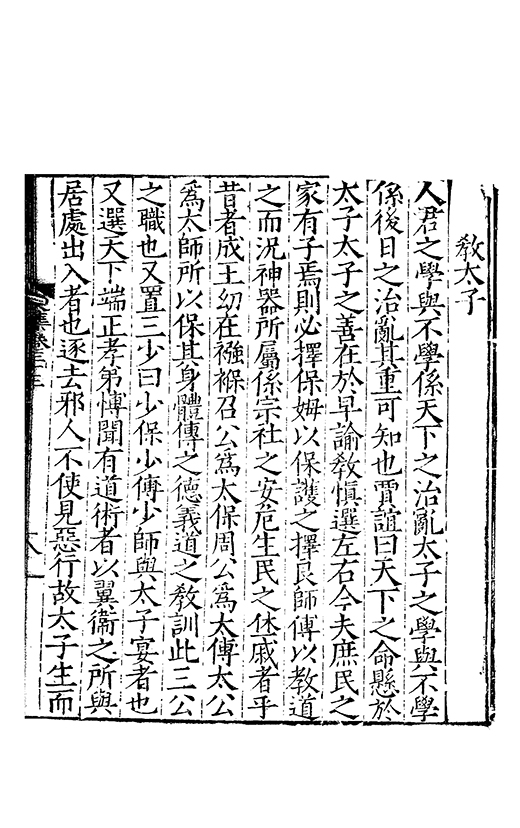 教太子
人君之學與不學係天下之治亂太子之學與不學
係後日之治亂其重可知也賈誼曰天下之命懸於
太子太子之善在於早諭教慎選左右今夫庶民之
家有子焉則必擇保姆以保護之擇良師傅以教道
之而況神器所屬係宗社之安危生民之休戚者乎
昔者成王幼在襁褓召公爲太保周公爲太傅太公
爲太師所以保其身體傅之德義道之教訓此三公
之職也又置三少曰少保少傅少師與太子宴者也
又選天下端正孝弟愽聞有道術者以翼衞之所與
居處出入者也逐去邪人不使見惡行故太子生而